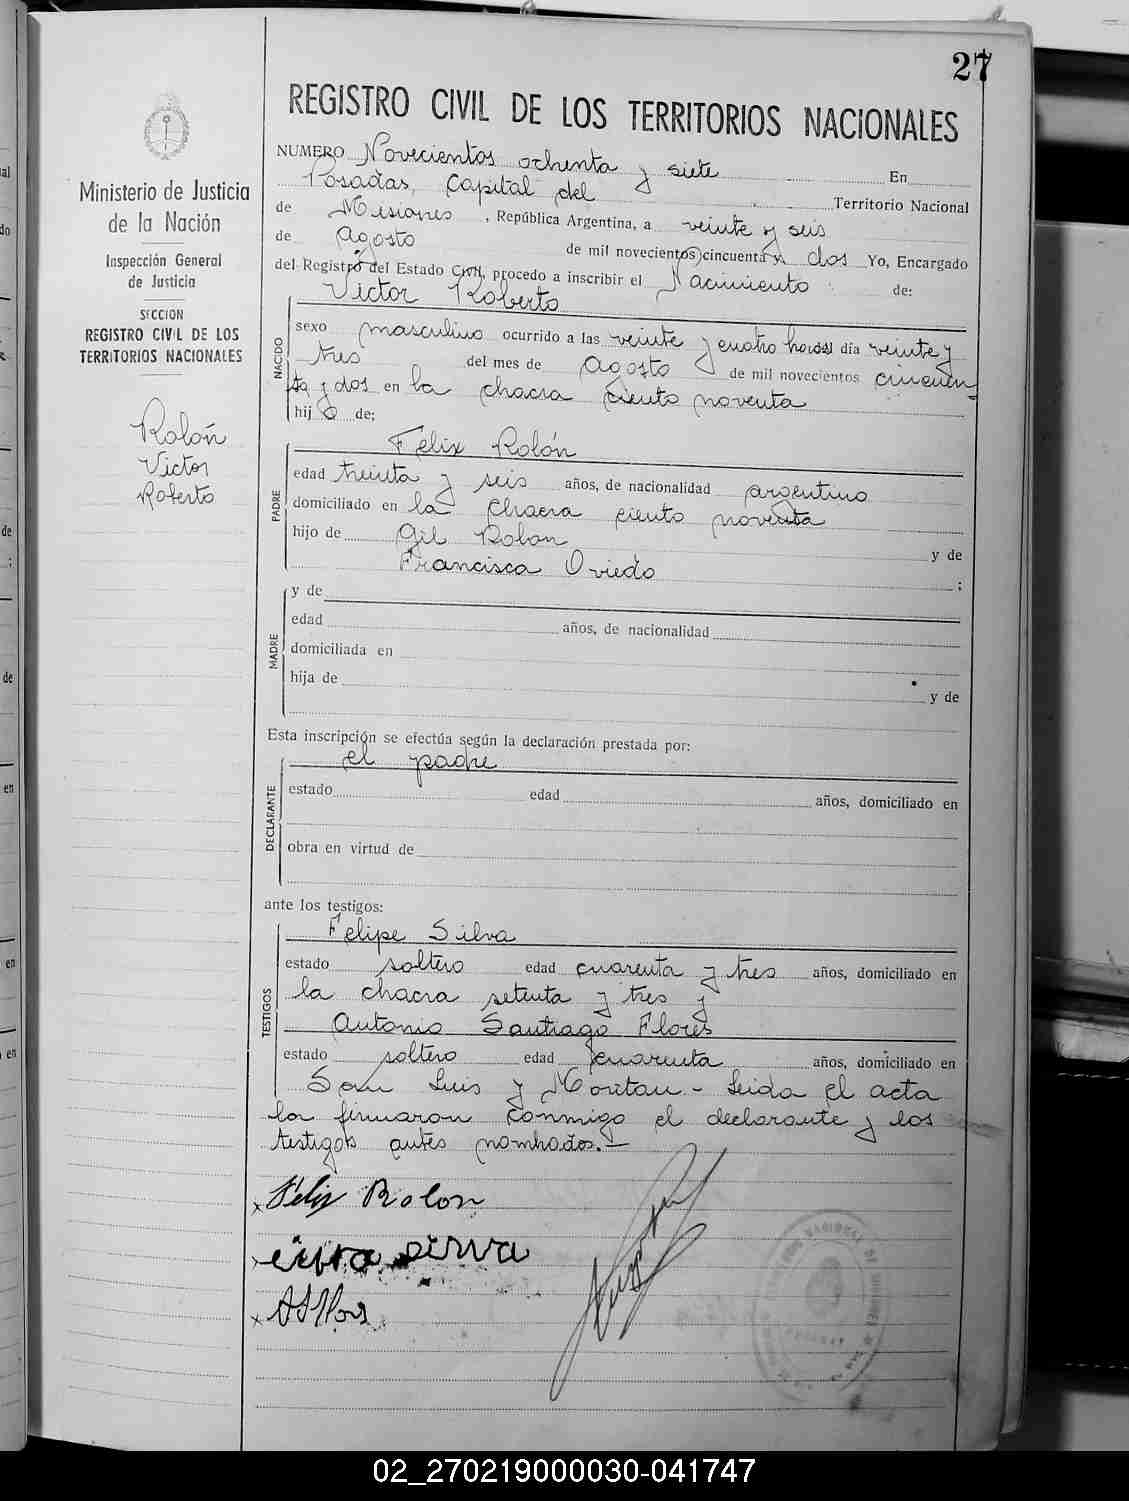 27
REGISTRO CIVIL DE LOS TERRITORIOS NACIONALES
Ministerio de Justicia
de la Nación
Inspección General
de Justicia
SECCION
REGISTRO CIVIL DE LOS
TERRITORIOS NACIONALES
Rolón
Victor
Roberto
NUMERO Novecientos ochenta y siete En
Posadas, Capital del Territorio Nacional
de Misiones, República Argentina, a veinte y seis
de Agosto de mil novecientos cincuenta y dos Yo, Encargado
del Registro del Estado Civil, procedo a inscribir el Nacimiento de:
Victor Roberto
NACIDO
sexo masculino ocurrido a las veinte y cuatro horas día veinte y
tres del mes de Agosto de mil novecientos cincuen
ta y dos en la chacra ciento noventa
hijo de;
Felix Rolón
PADRE
edad treinta y seis años, de nacionalidad argentino
domiciliado en la chacra ciento noventa
hijo de Gil Rolon y de
Francisca Oviedo ;
MADRE
y de
edad años, de nacionalidad
domiciliada en
hija de y de
Esta inscripción se efectúa según la declaración prestada por:
el padre
DECLARANTE
estado edad años, domiciliado en
obra en virtud de
ante los testigos:
Felipe Silva
TESTIGOS
estado soltero edad cuarenta y tres años, domiciliado en
la chacra setenta y tres y
Antonio Santiago Flores
estado soltero edad cuarenta años, domiciliado en
San Luis y Moritan - Leida el acta
la firmaron conmigo el declarante y los
testigos antes nombrados.-
x Félix Rolon
silva
x ASFlores
02_270219000030-041747